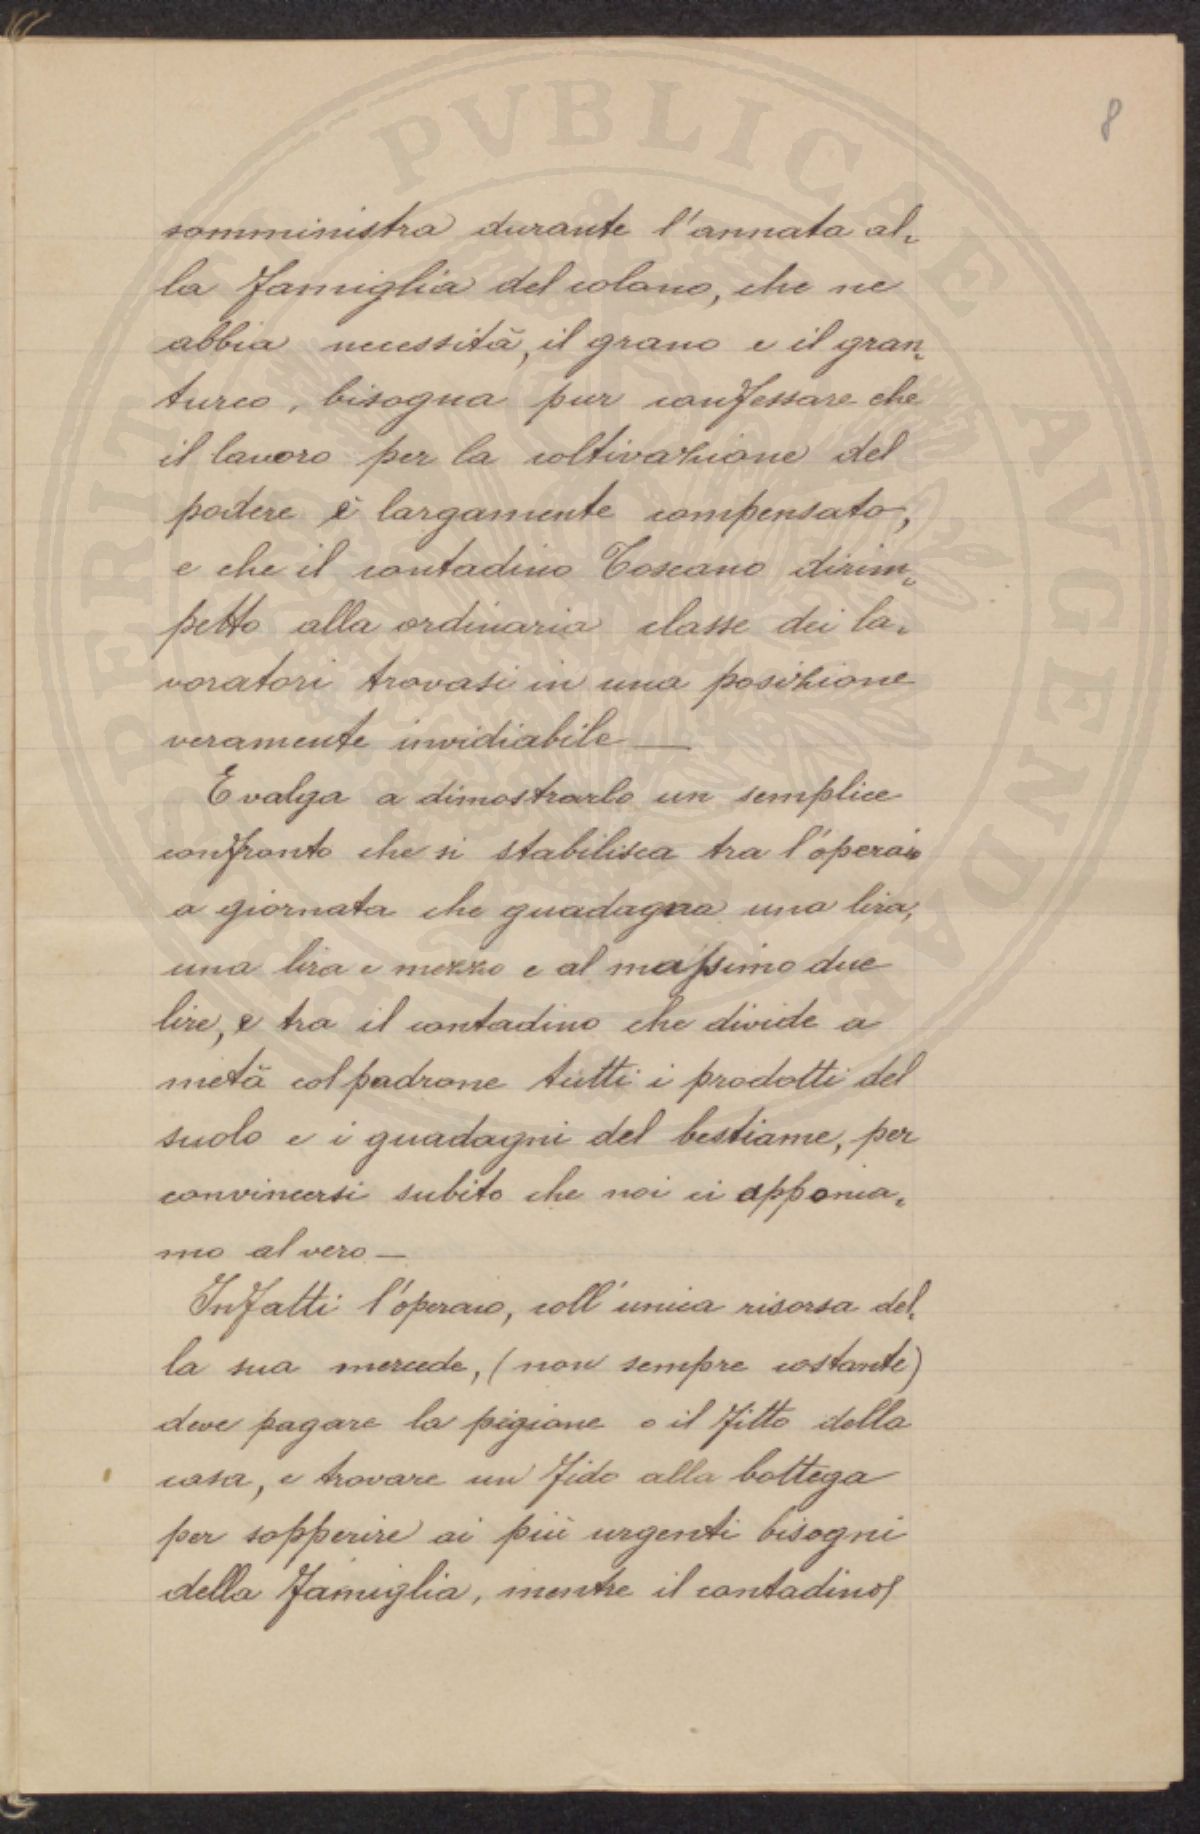 8
somministra durante l'annata al„
la famiglia del colono, che ne
abbia necessità, il grano e il gran„
turco, bisogna pur confessare che
il lavoro per la coltivazione del
podere è largamente compensato,
e che il contadino Toscano dirim„
petto alla ordinaria classe dei la„
voratori trovasi in una posizione
veramente invidiabile —
E valga a dimostrarlo un semplice
confronto che si stabilisca tra l'operaio
a giornata che guadagna una lira,
una lira e mezzo e al massimo due
lire, e tra il contadino che divide a
metà col padrone tutti i prodotti del
suolo e i guadagni del bestiame, per
convincersi subito che noi ci apponia„
mo al vero —
Infatti l'operaio, coll'unica risorsa del„
la sua mercede, (non sempre costante)
deve pagare la pigione o il fitto della
casa, e trovare un fido alla bottega
per sopperire ai più urgenti bisogni
della famiglia, mentre il contadino
PROSPERITATI PVBLICAE AVGENDAE